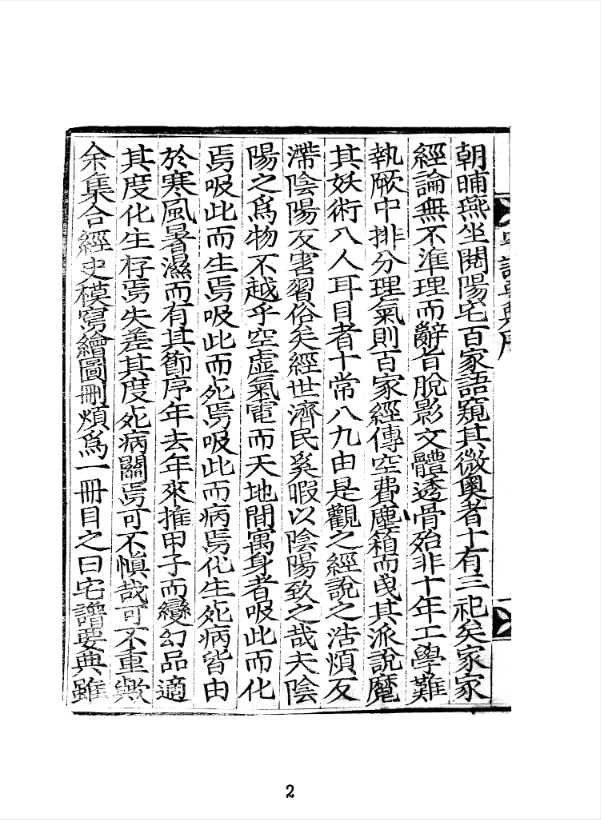 宅譜要典序
朝晡燕坐閱陽宅百家語窺其微奧者十有三祀矣家家
經論無不準理而辭旨脫影文體透骨殆非十年工學難
執厥中排分理氣則百家經傳空費塵箱而曳其派說魔
其妖術八人耳目者十常八九由是觀之經說之浩煩反
滯陰陽反害習俗矣經世濟民奚暇以陰陽致之哉夫陰
陽之爲物不越乎空虛氣電而天地間寓身者吸此而化
焉吸此而生焉吸此而死焉吸此而病焉化生死病皆由
於寒風暑濕而有其節序年去年來推甲子而變幻品適
其度化生存焉失差其度死病關焉可不愼哉可不重歟
余集合經史模寫繪圖刪煩爲一冊目之曰宅譜要典雖
2